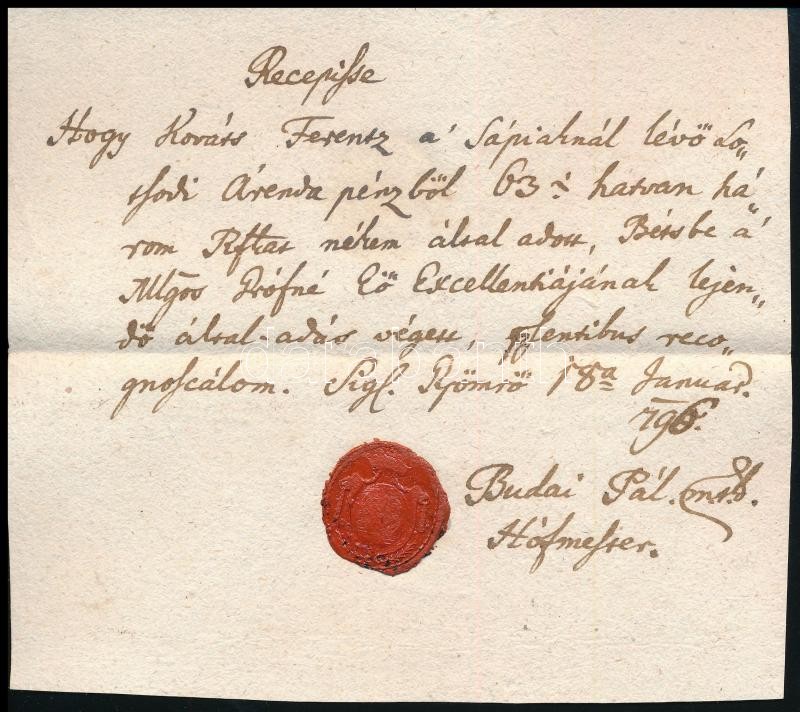 Recepisse
Hogy Kováts Ferentz a' Sápiaknál lévö Lo„
tsodi Árenda pénzböl 63.i. hatvan há„
rom Rftat nékem által adott, Bétsbe a'
Mlgos Grófné Eö Excellentiájának lejen„
dö által-adás végett, pñtentibus reco„
gnoscálom. Sigl. Gyömrö 18a Januar.
796.
Budai Pál. mk.
Hófmester.
darabanth